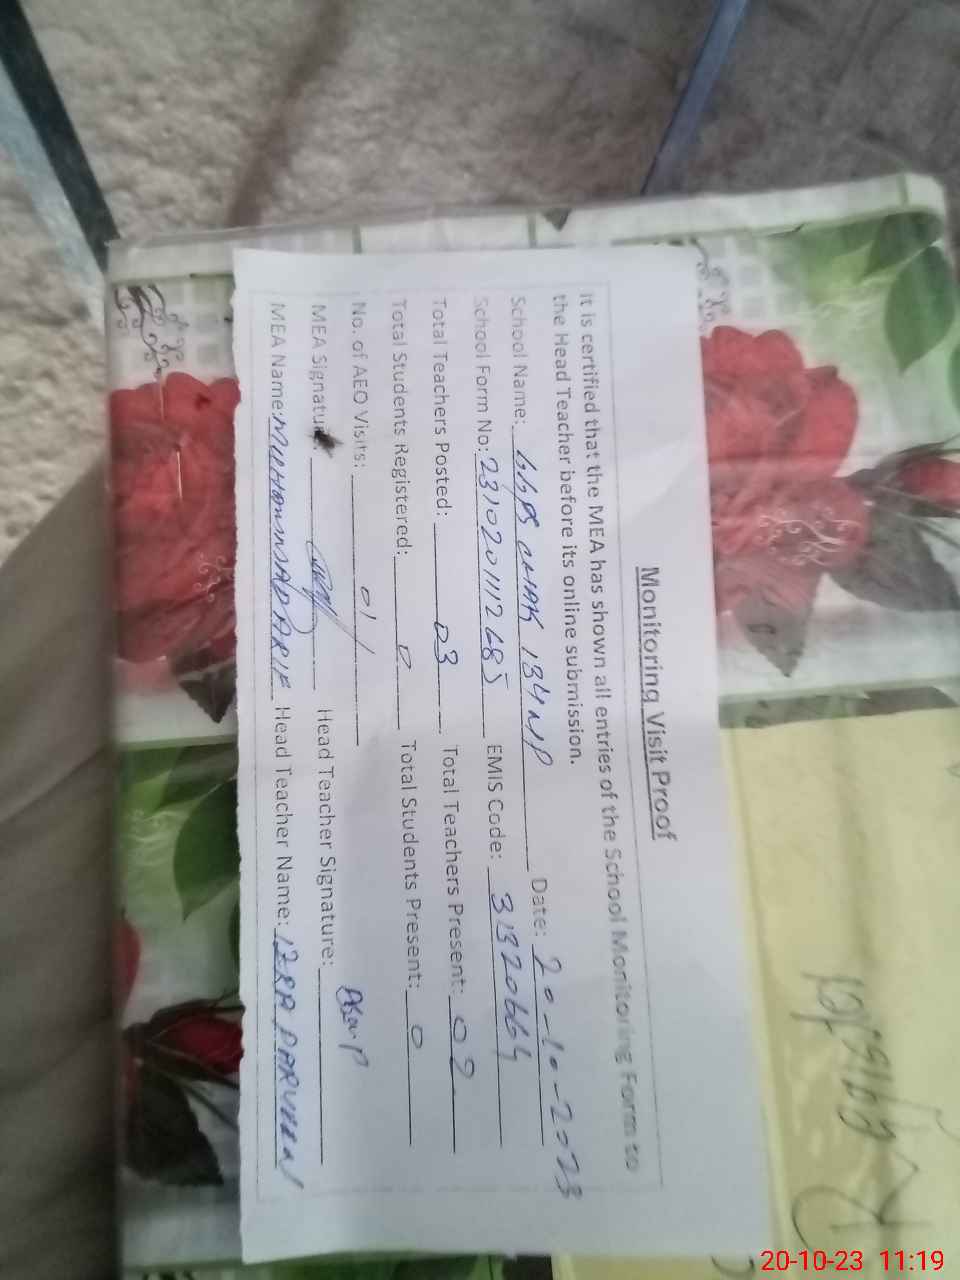 Monitoring Visit Proof
It is certified that the MEA has shown all entries of the School Monitoring Form to
the Head Teacher before its online submission.
School Name: GGPS CHAK 134 MP Date: 20-10-2023
School Form No: 2310201112685 EMIS Code: 31320664
Total Teachers Posted: 03 Total Teachers Present: 02
Total Students Registered: 0 Total Students Present: 0
No. of AEO Visits: 01
MEA Signature: Head Teacher Signature:
MEA Name: MUHAMMAD ARIF Head Teacher Name: PARVEEN
20-10-23 11:19